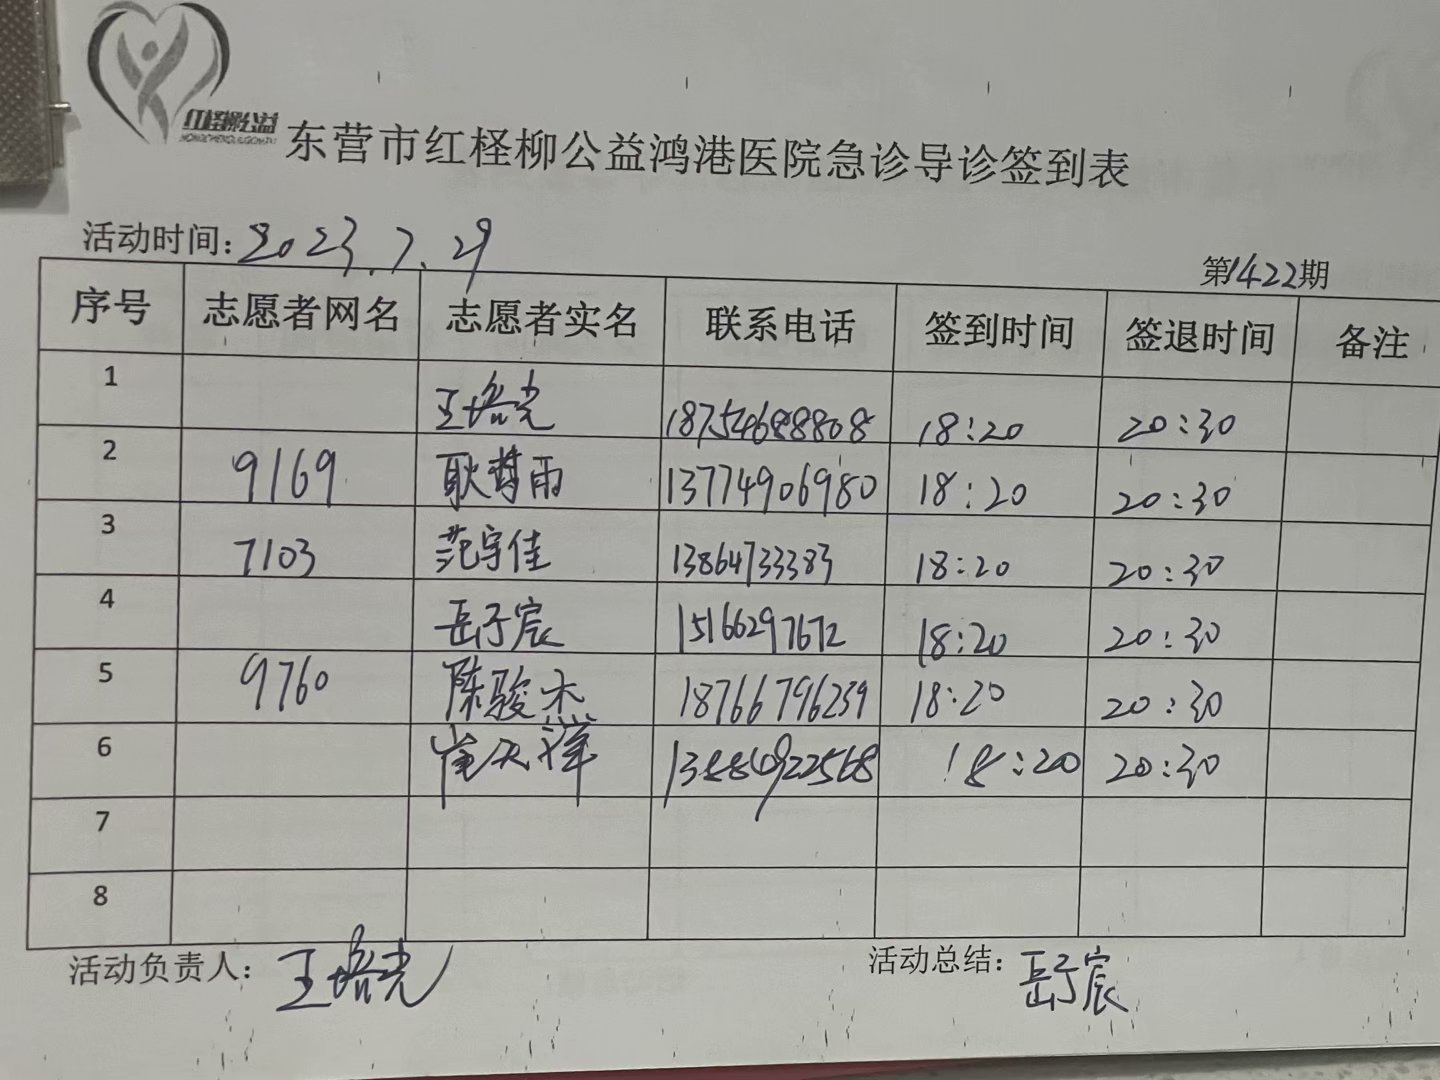 红柽柳公益
东营市红柽柳公益鸿港医院急诊导诊签到表
活动时间：2023.7.29
第1422期
序号 志愿者网名 志愿者实名 联系电话 签到时间 签退时间 备注
1 王培光 18754688808 18:20 20:30
2 9169 耿哲雨 13774906980 18:20 20:30
3 7103 范宇佳 13864733383 18:20 20:30
4 岳子宸 15166297672 18:20 20:30
5 9760 陈骏杰 18766796239 18:20 20:30
6 崔天祥 18:20 20:30
7
8
活动负责人：王培光
活动总结：岳子宸